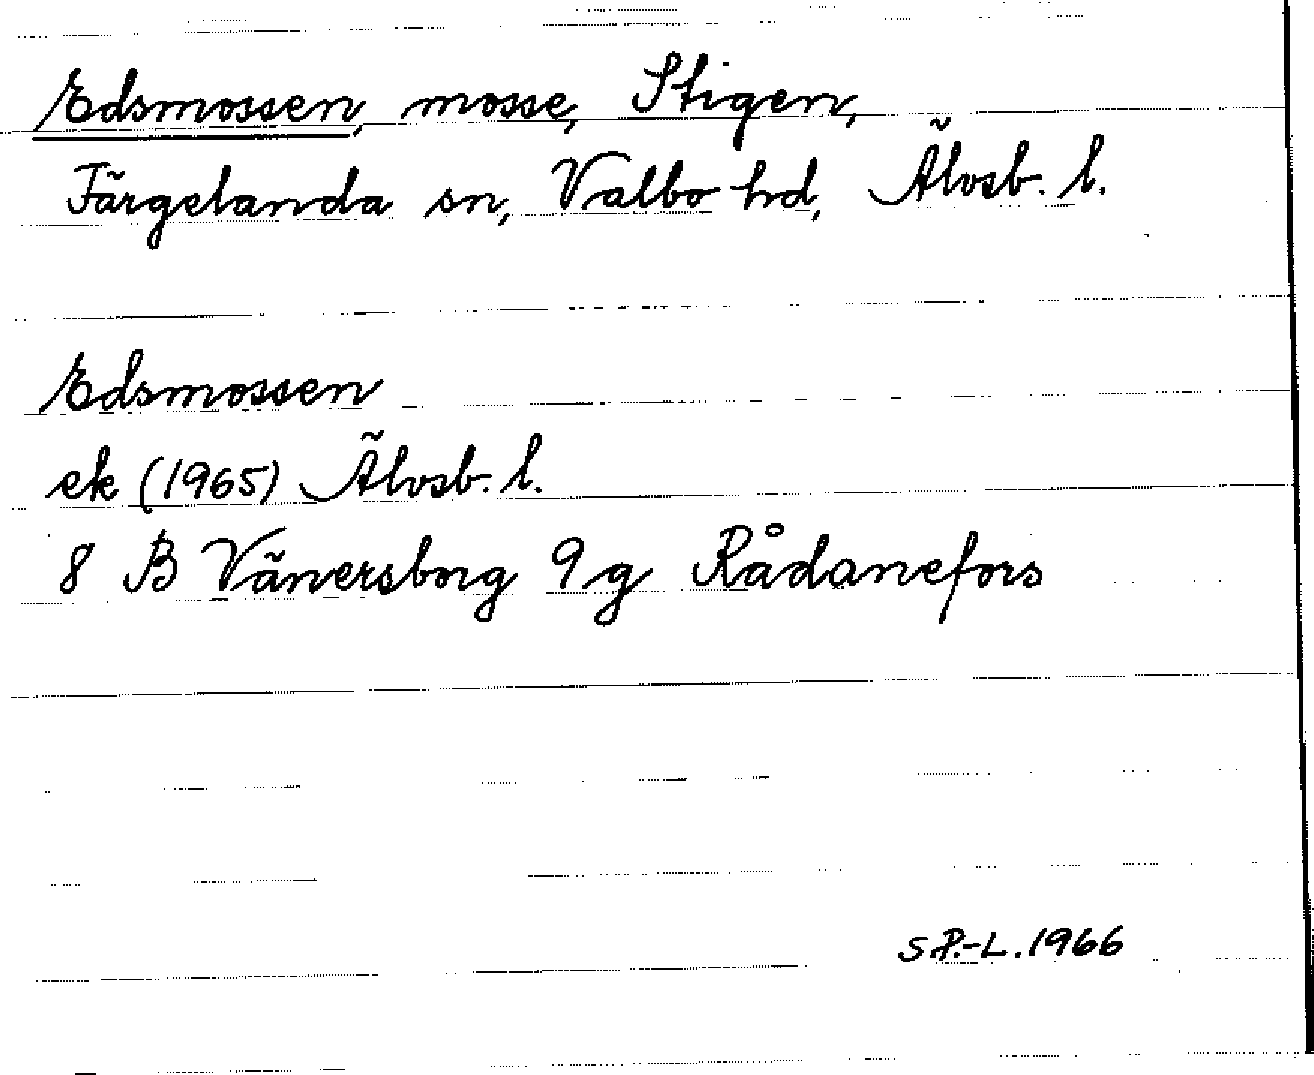 Edsmossen, mosse, Stigen,
Färgelanda sn, Valbo hd, Älvsb. l.
Edsmossen
ek (1965) Älvsb. l.
8 B Vänersborg 9g Rådanefors
S P.-L. 1966